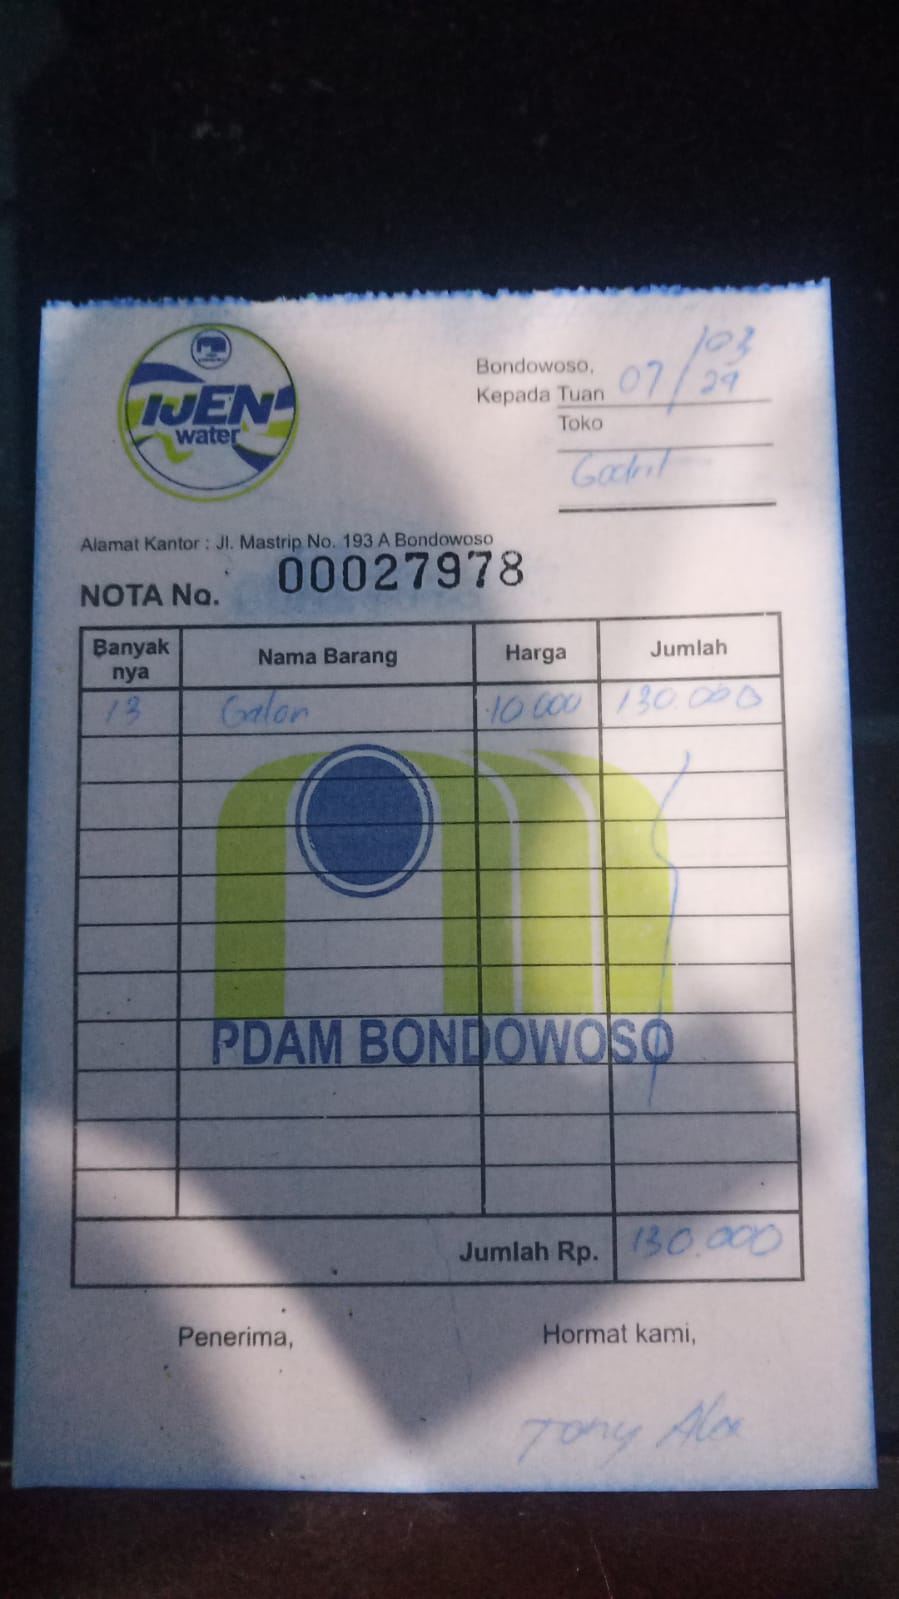 IJEN
water
Bondowoso, 07/03
Kepada Tuan 24
Toko
Alamat Kantor : Jl. Mastrip No. 193 A Bondowoso
NOTA No. 00027978
Banyak nya Nama Barang Harga Jumlah
13 Galon 10.000 130.000
PDAM BONDOWOSO
Jumlah Rp. 130.000
Penerima, Hormat kami,
Tony Alex